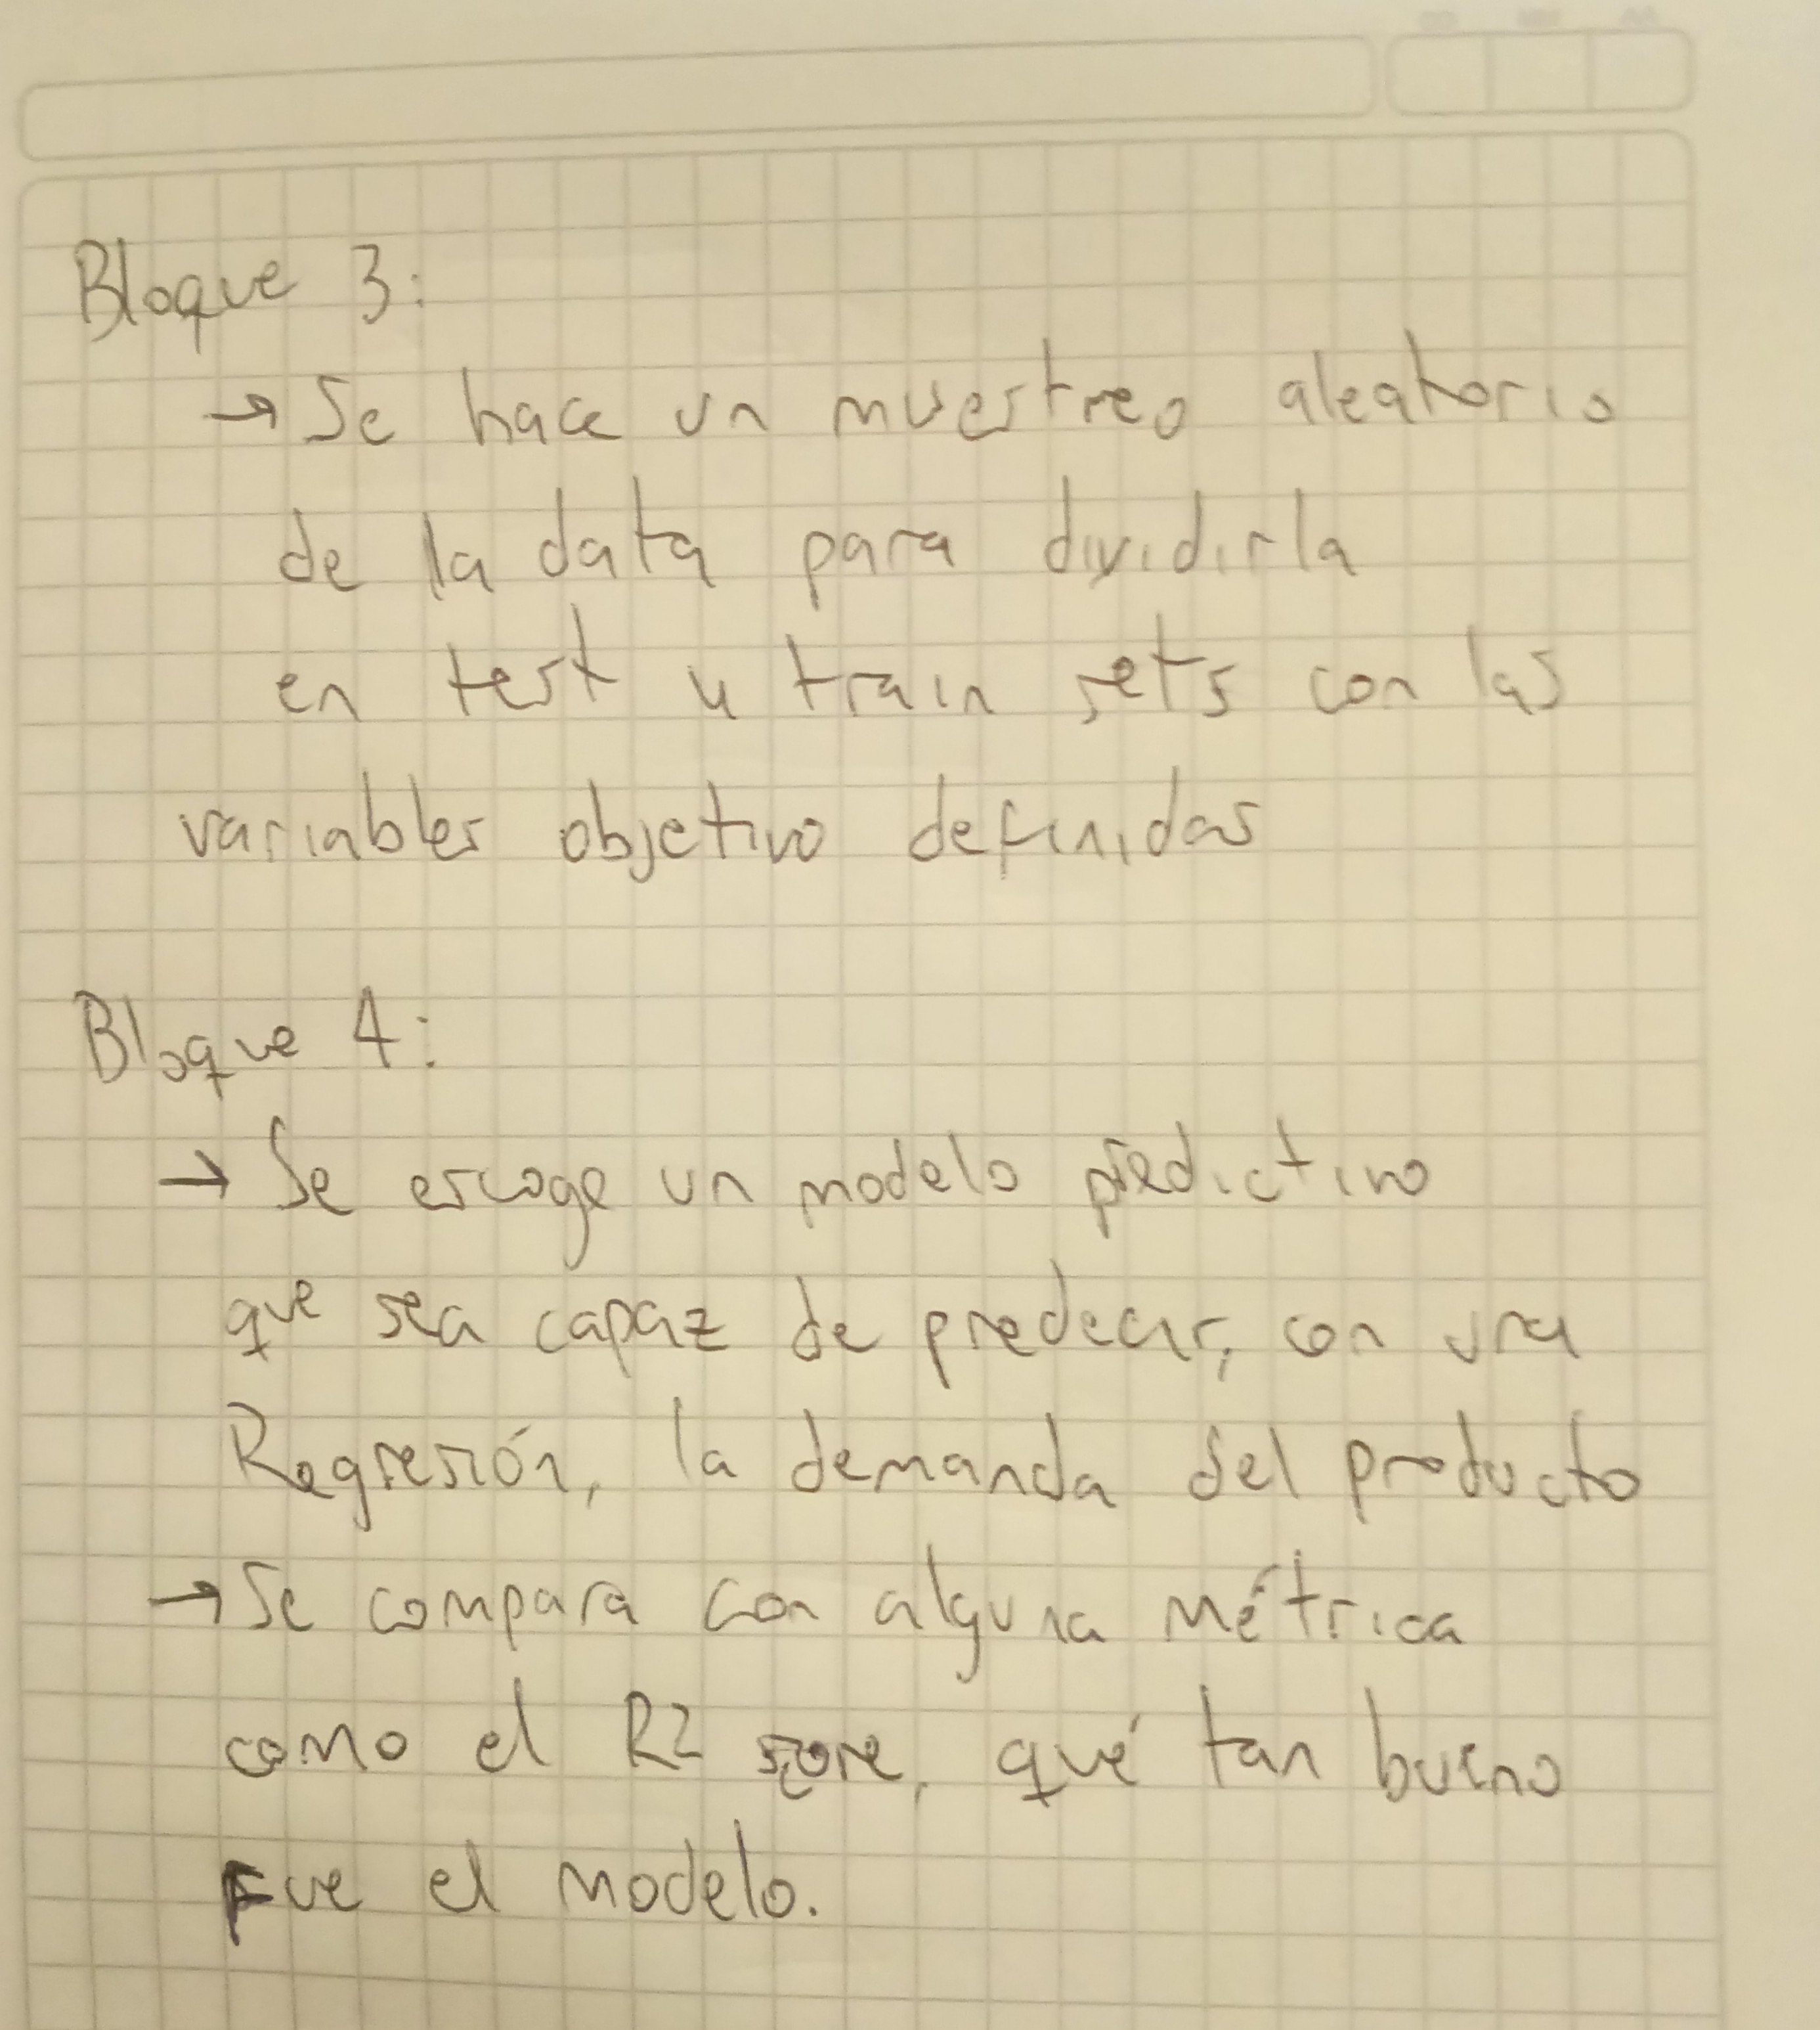 Bloque 3:
→ Se hace un muestreo aleatorio
de la data para dividirla
en test y train sets con las
variables objetivo definidas
Bloque 4:
→ Se escoge un modelo predictivo
que sea capaz de predecir, con una
Regresión, la demanda del producto
→ Se compara con alguna métrica
como el R2 score, qué tan bueno
Fue el modelo.